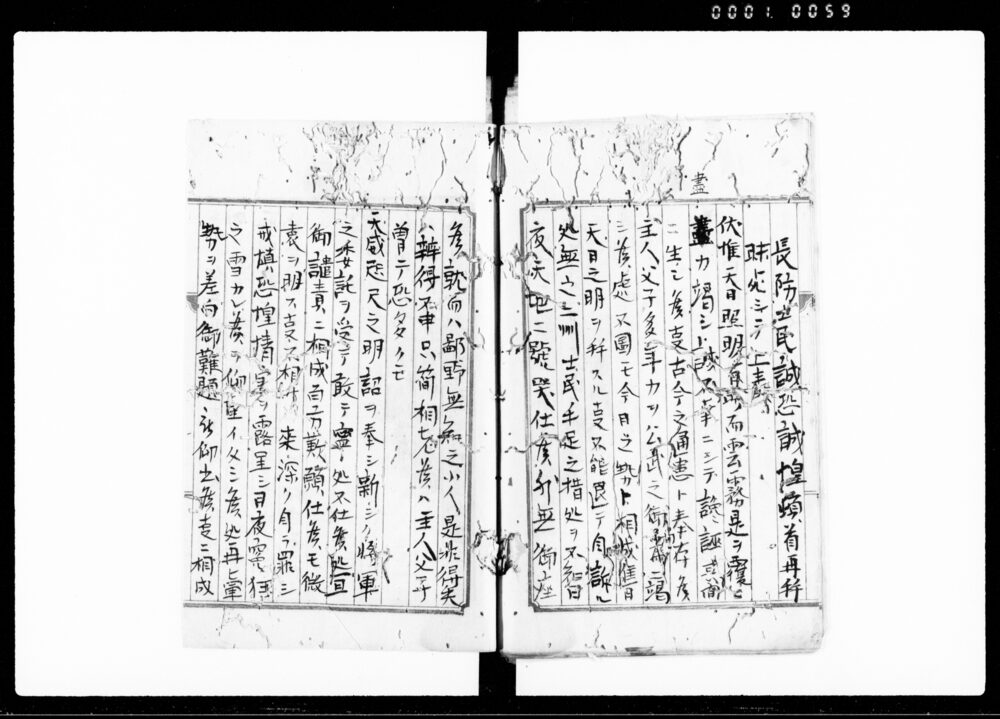 0001 0059
盡
長防士民誠恐誠惶頓首再拜
昧死シテ上書
伏惟天日照明有時而雲霧是ヲ覆ヒ
盡力竭シト誠不幸ニシテ讒誣其間
ニ生シ候支古今之通患ト奉存候
主人父子多年力ヲ公武之御為ニ竭
シ候處不圖モ今日之勢ト相成候旨
天日之明ヲ科スル支不能畏テ自訴ル
処無ク二州士民手足之措処ヲ不知日
夜天地ニ號哭仕候外無御座
候就而ハ鄙野無知之小人是非得失
ハ辨得不申只簡相考候ハ主人父子
曽テ恐多クモ
天威咫尺之明詔ヲ奉シ新シク將軍
之委託ヲ受テ敢テ寧処不仕候処豆
御譴責ニ相成百方歎願仕候モ微
衷ヲ明ス支不相叶来深ク自ラ罪シ
戒慎恐惶情実ヲ露呈シ日夜
之雪カレ候ヲ仰望イタシ候処再ヒ軍
勢ヲ差向御難題被仰出候支ニ相成